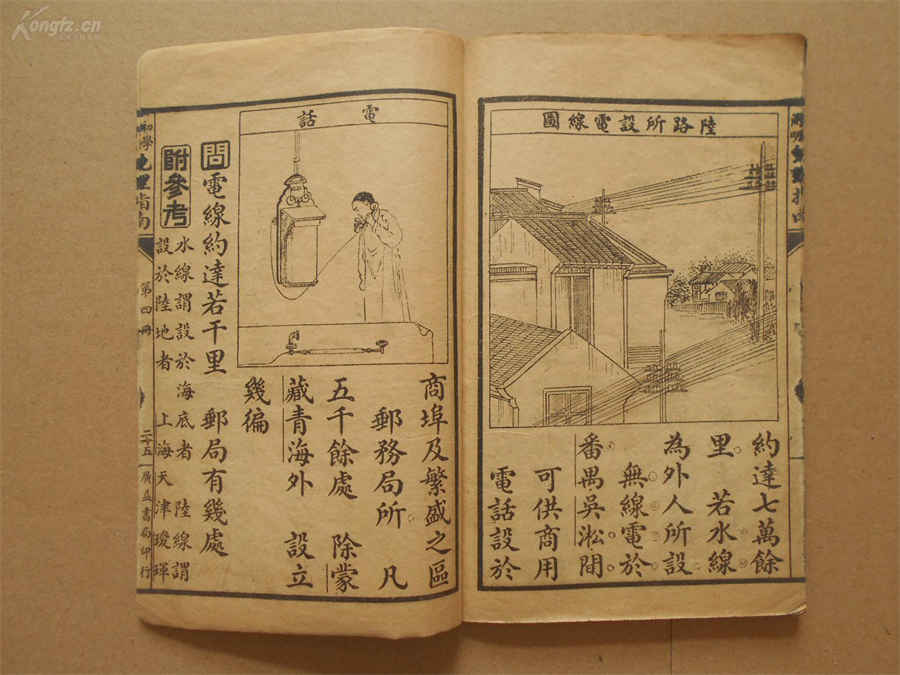 Kongfz.cn
陸路所設電線圖
約達七萬餘
里 若水線
為外人所設
無線電於
番禺吳淞間
可供商用
電話設於
電話
商埠及繁盛之區
郵務局所 凡
五千餘處 除蒙
藏青海外 設立
幾徧
問 電線約達若干里 郵局有幾處
附參考 水線謂設於海底者 陸線謂
設於陸地者 上海天津璦琿
初學地理指南 第四冊 二十五 廣益書局印行